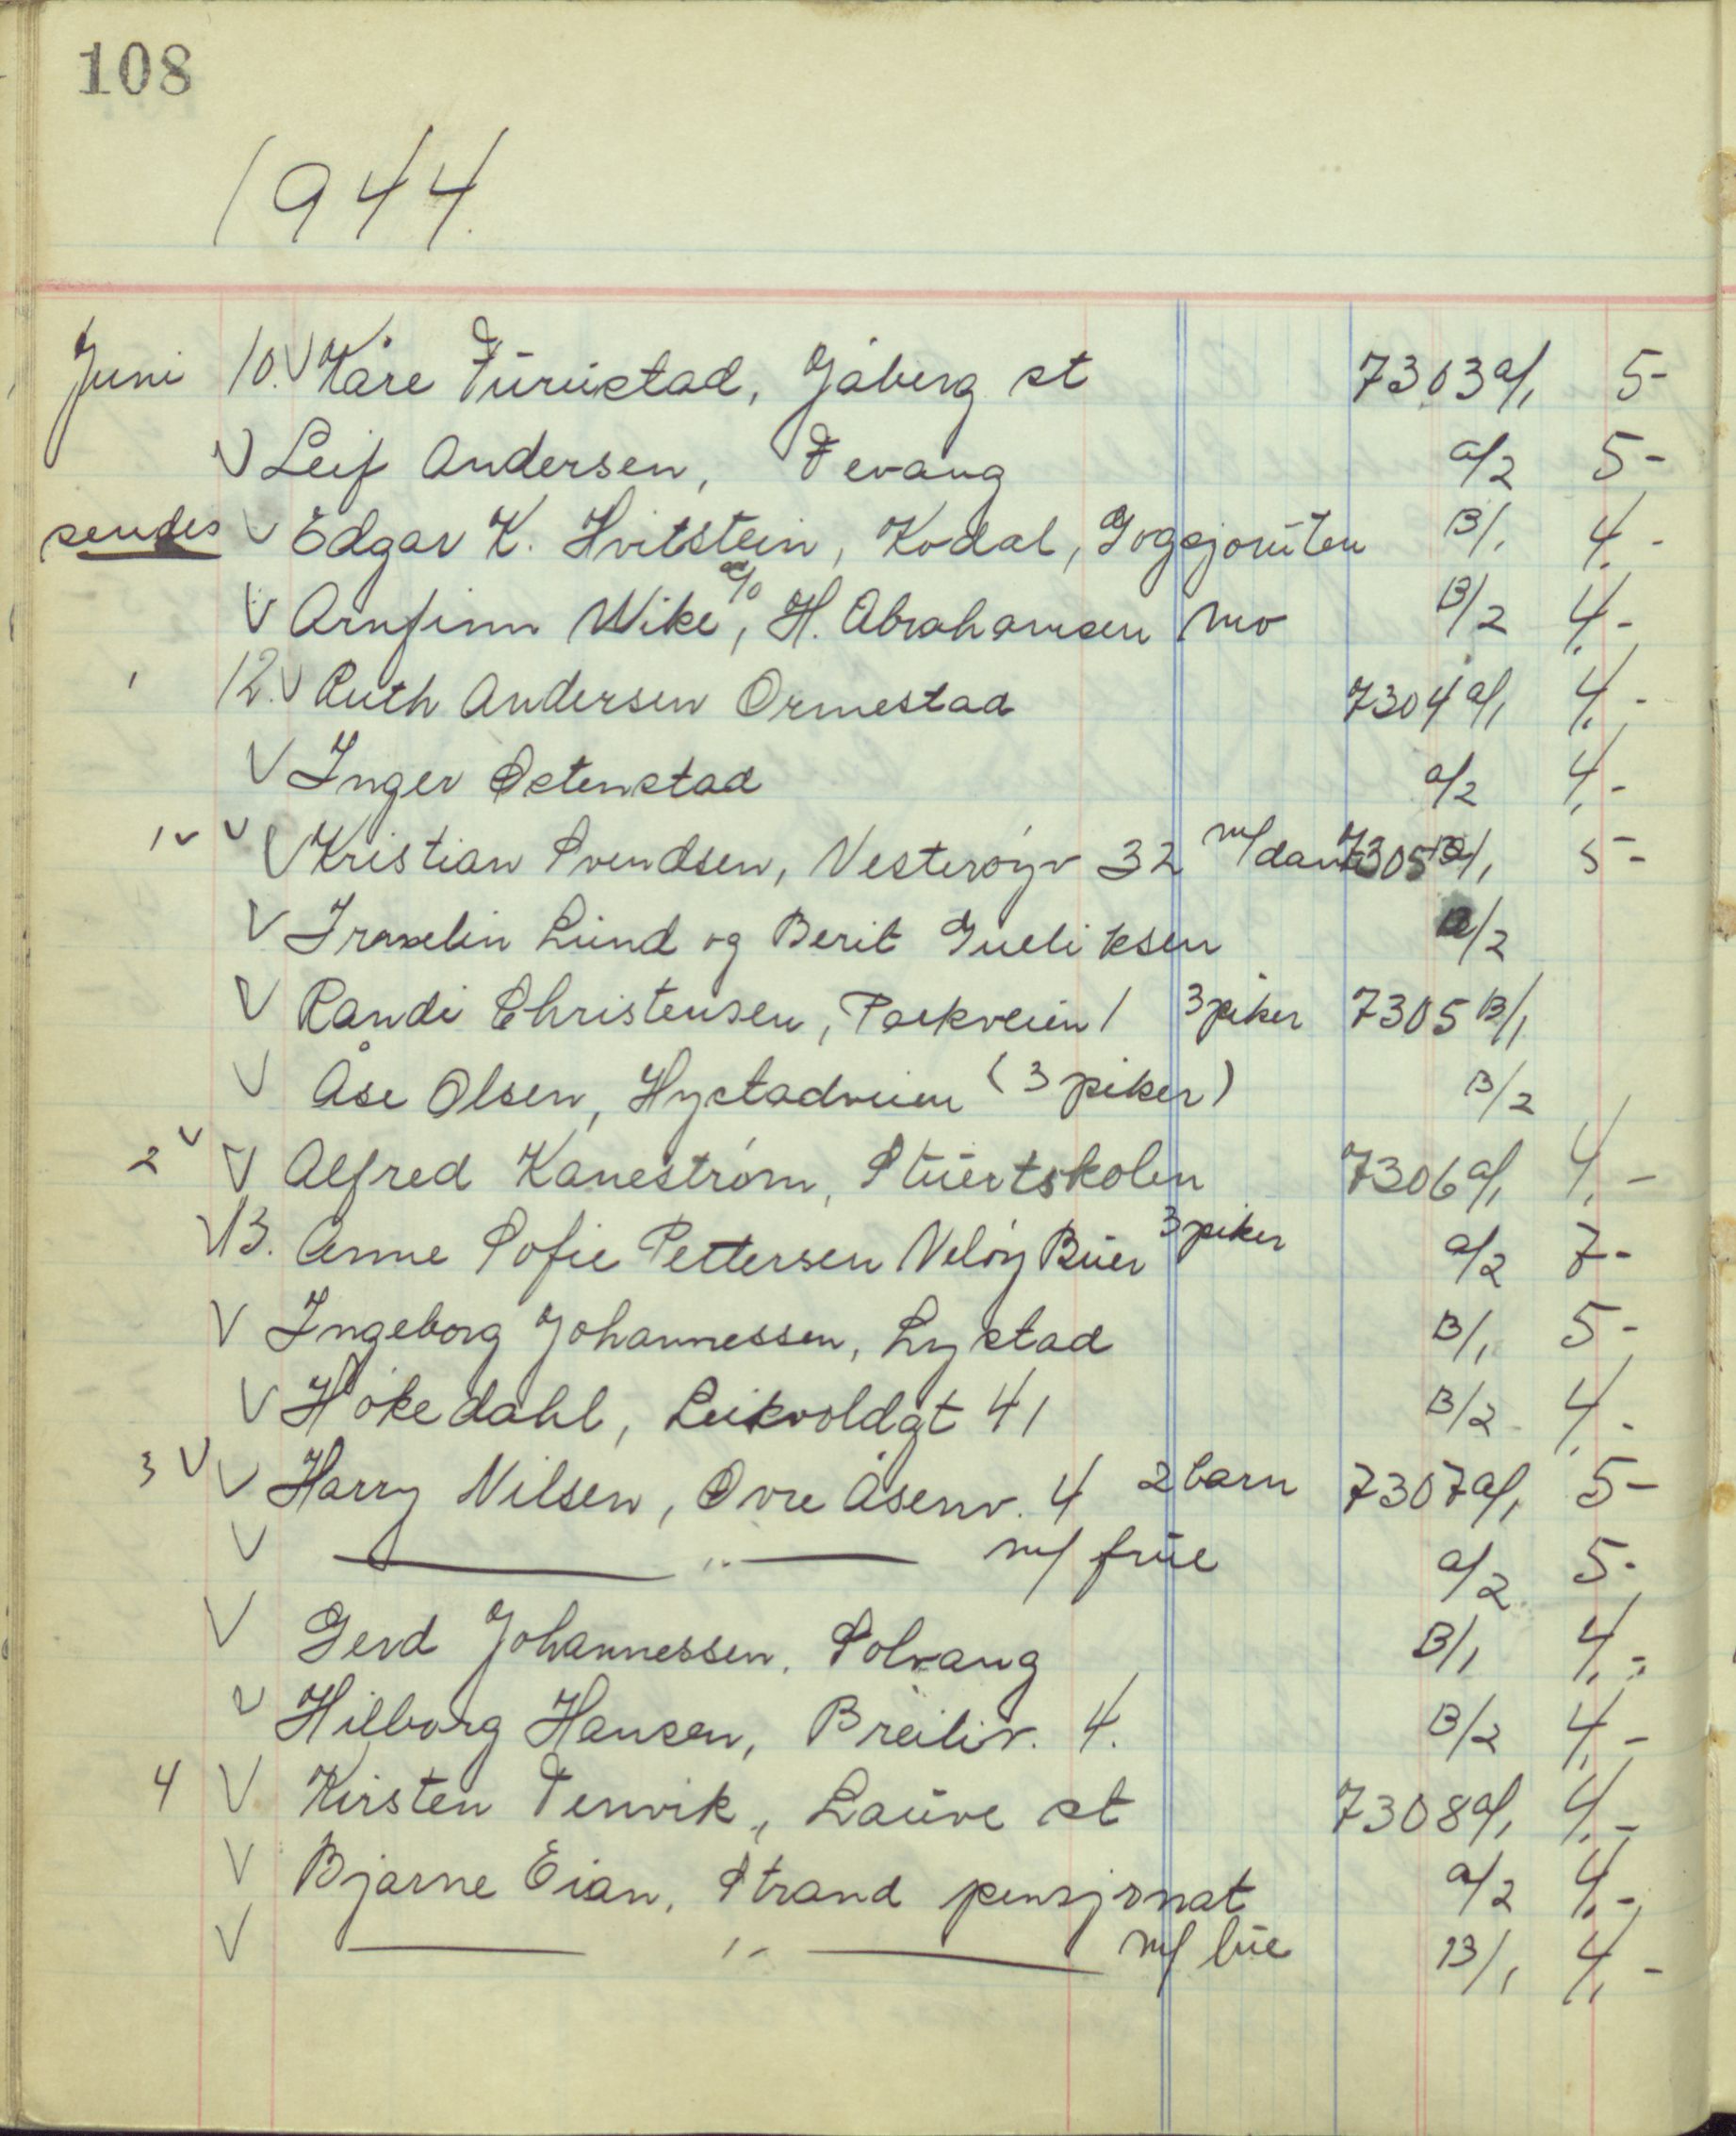 108
1944.
Juni 10. V Kåre Furustad, Jåberg st 7303 a/1 5-
V Leif Andersen, Fevang a/2 5-
sendes V Edgar K. Hvitstein, Kodal, Gogsjøruten B/1 4.-
V Arnfinn Wike, c/o H. Abrahamsen Mo B/2 4.-
1 12. V Ruth Andersen Ormestad 7304 a/1 4.-
V Inger Østenstad a/2 4.-
1 v v V Kristian Svendsen, Vesterøyv 32 m/dame 7305 a/1 5-
V Lund og Berit a/2
V Randi Christensen, Parkveien 1 3 piker 7305 B/1
V Åse Olsen, Hystadveien (3 piker) B/2
2 v V Alfred Kanestrøm, Stuertskolen 7306 a/1 4.-
V 13. Anne Sofie Pettersen Veløy Buer 3 piker a/2 7-
V Ingeborg Johannessen, Lystad B/1 5-
V Høkedahl, Leikvoldgt 41 B/2 4.-
3 V V Harry Nilsen, Øvre Åsenv. 4 2 barn 7307 a/1 5-
V — " — m/ frue a/2 5-
V Gerd Johannessen, Solvang B/1 4.-
V Hilborg Hansen, Breiliv. 4. B/2 4.-
4 V Kirsten Tenvik, Lauve st 7308 a/1 4.-
V Bjarne Eian, Strand pensjonat a/2 4.-
V — " — m/ lue B/1 4.-